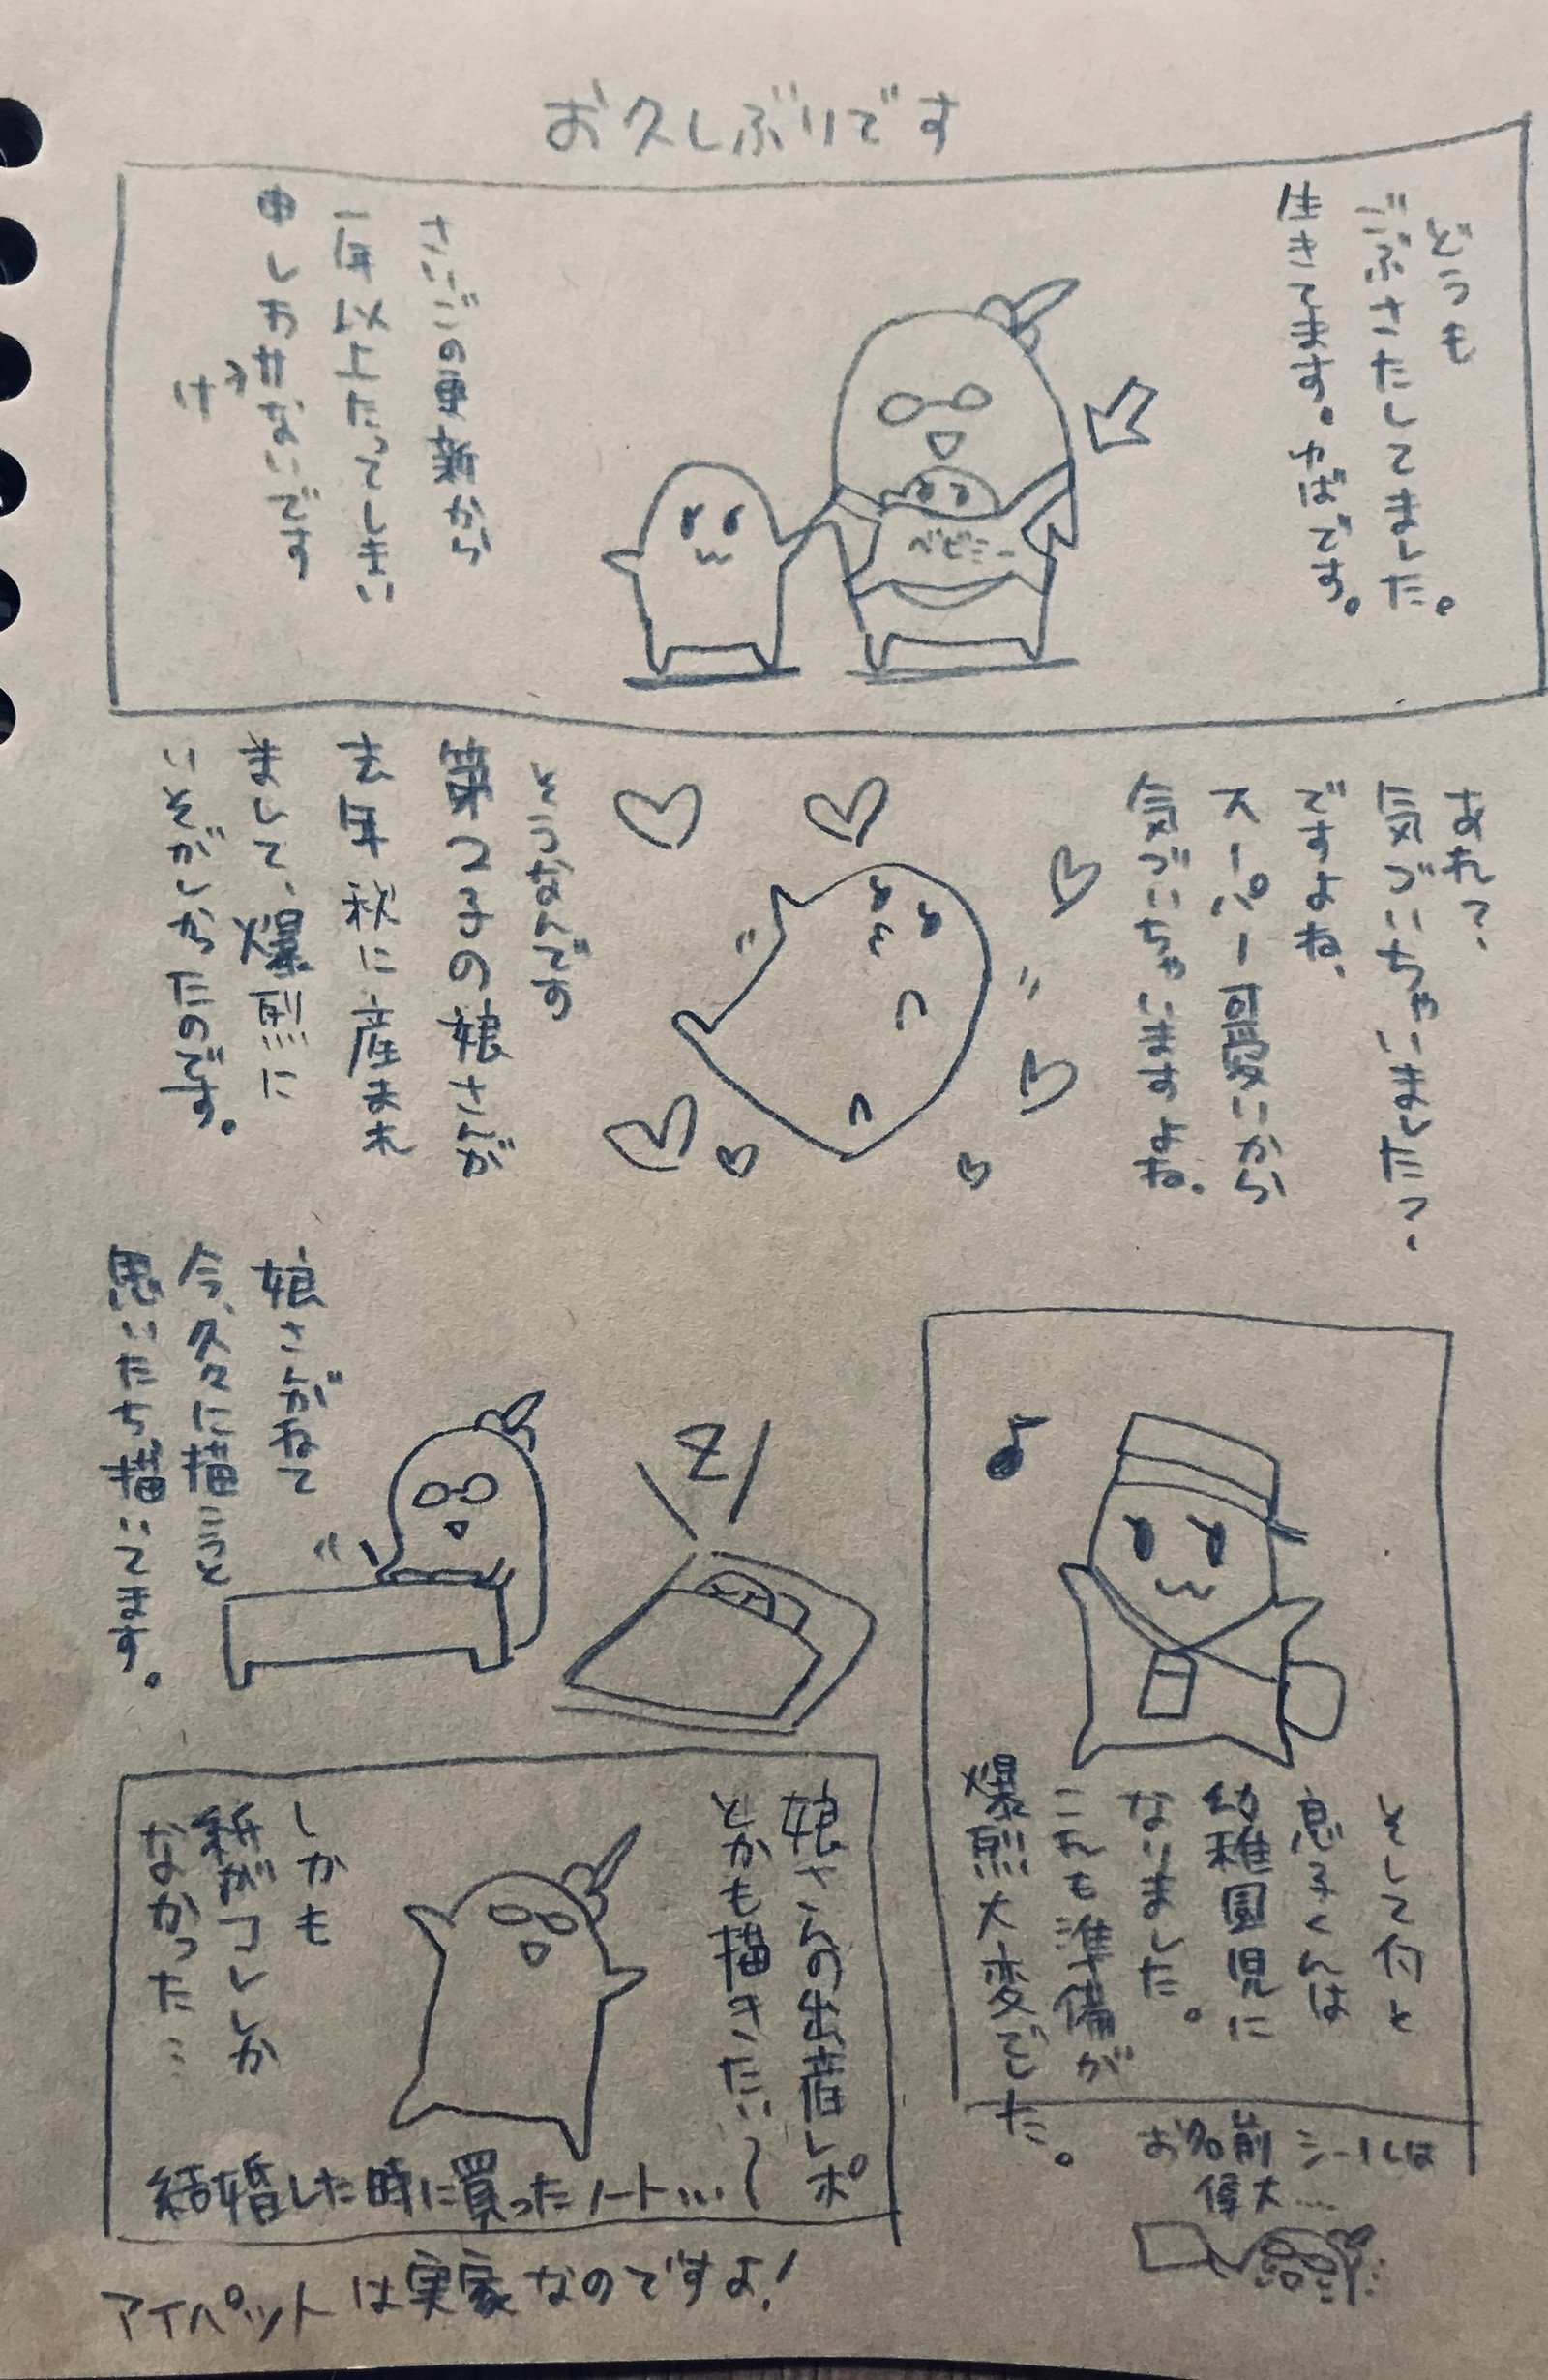 お久しぶりです
どうも
ごぶさたしてました。
生きてます。ゆばです。
ベビー
さいごの更新から
一年以上たってしまい
申しわけないです
あれ?
気づいちゃいました?
ですよね、
スーパー可愛いから
気づいちゃいますよね。
そうなんです
第2子の娘さんが
去年秋に産まれ
まして、爆烈に
いそがしかったのです。
そして何と
息子くんは
幼稚園児に
なりました。
これも準備が
爆烈大変でした。
お名前シールは
偉大…
Z
娘さんがねて
今、久々に描こうと
思いたち描いてます。
娘さんの出産レポ
とかも描きたい〜
しかも
紙がコレしか
なかった…
結婚した時に買ったノート…
アイパットは実家なのですよ!